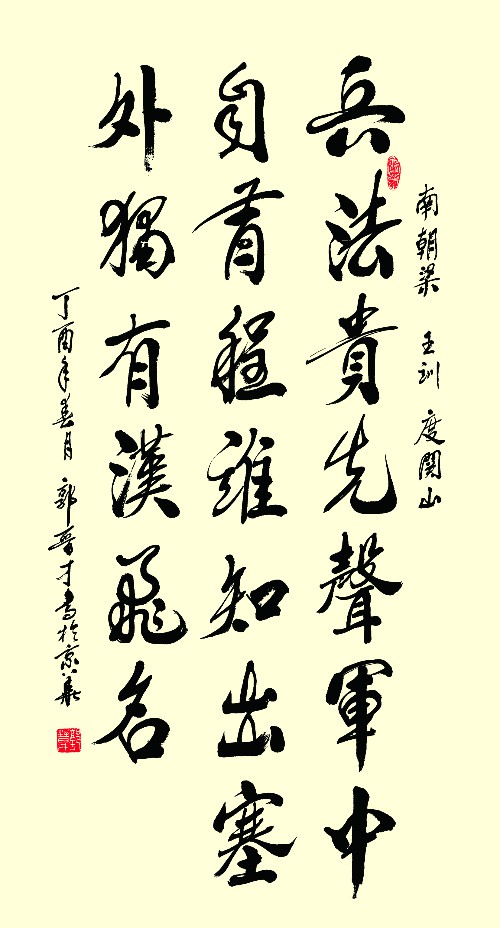 南朝梁 王訓 度関山
兵法貴先聲軍中
自有程誰知出塞
外獨有漢飛名
丁酉年春月 郭晋才書於京華